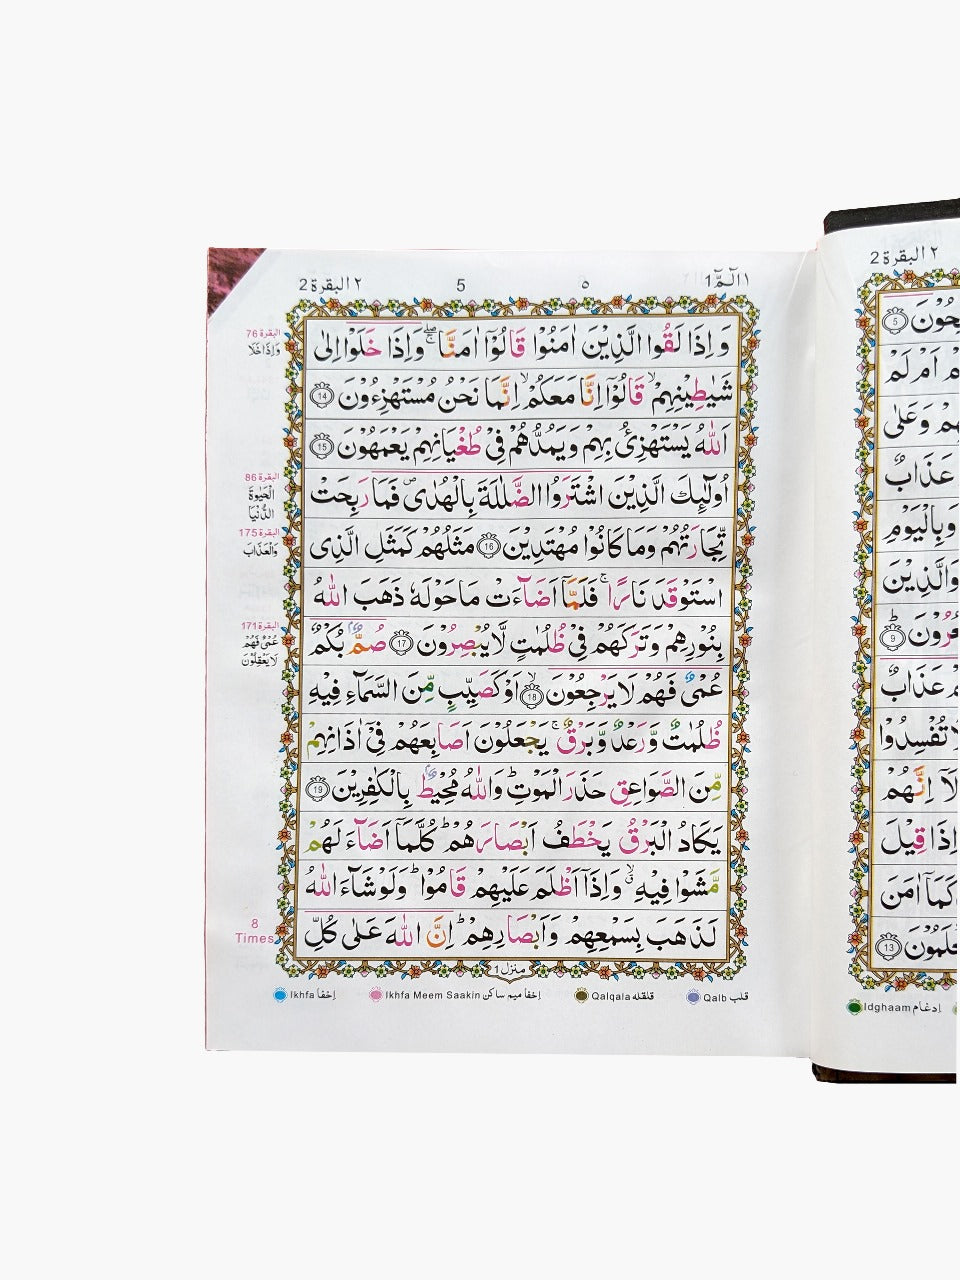 ١ الٓمّٓ 1
٥
5
٢ البقرة 2
وَ اِذَا لَقُوا الَّذِيْنَ اٰمَنُوْا قَالُوْٓا اٰمَنَّا ۖۚ وَاِذَا خَلَوْا اِلٰى
شَيٰطِيْنِهِمْ ۙ قَالُوْٓا اِنَّا مَعَكُمْ ۙ اِنَّمَا نَحْنُ مُسْتَهْزِءُوْنَ 14
اَللّٰهُ يَسْتَهْزِئُ بِهِمْ وَيَمُدُّهُمْ فِيْ طُغْيَانِهِمْ يَعْمَهُوْنَ 15
اُولٰٓئِكَ الَّذِيْنَ اشْتَرَوُا الضَّلٰلَةَ بِالْهُدٰى ۪ فَمَا رَبِحَتْ
تِّجَارَتُهُمْ وَمَا كَانُوْا مُهْتَدِيْنَ 16 مَثَلُهُمْ كَمَثَلِ الَّذِى
اسْتَوْقَدَ نَارًا ۚ فَلَمَّآ اَضَآءَتْ مَا حَوْلَهٗ ذَهَبَ اللّٰهُ
بِنُوْرِهِمْ وَتَرَكَهُمْ فِيْ ظُلُمٰتٍ لَّا يُبْصِرُوْنَ 17 صُمٌّۢ بُكْمٌ
عُمْىٌ فَهُمْ لَا يَرْجِعُوْنَ ۙ 18 اَوْ كَصَيِّبٍ مِّنَ السَّمَآءِ فِيْهِ
ظُلُمٰتٌ وَّرَعْدٌ وَّبَرْقٌ ۚ يَجْعَلُوْنَ اَصَابِعَهُمْ فِيْٓ اٰذَانِهِمْ
مِّنَ الصَّوَاعِقِ حَذَرَ الْمَوْتِ ؕ وَاللّٰهُ مُحِيْطٌۢ بِالْكٰفِرِيْنَ 19
يَكَادُ الْبَرْقُ يَخْطَفُ اَبْصَارَهُمْ ؕ كُلَّمَآ اَضَآءَ لَهُمْ
مَّشَوْا فِيْهِ ۙۗ وَاِذَآ اَظْلَمَ عَلَيْهِمْ قَامُوْا ؕ وَلَوْ شَآءَ اللّٰهُ
لَذَهَبَ بِسَمْعِهِمْ وَاَبْصَارِهِمْ ؕ اِنَّ اللّٰهَ عَلٰى كُلِّ
منزل 1
البقرة 76
وَاِذَا خَلَا
البقرة 86
الْحَيٰوةَ
الدُّنْيَا
البقرة 175
وَالْعَذَابَ
البقرة 171
عُمْىٌ فَهُمْ
لَا يَعْقِلُوْنَ
8
Times
Ikhfa اِخفا
Ikhfa Meem Saakin اِخفا ميم ساكن
Qalqala قلقله
Qalb قلب
٢ البقرة 2
حُوْنَ 5
مْ اَمْ لَمْ
هِمْ وَعَلٰى
عَذَابٌ
وَبِالْيَوْمِ
وَالَّذِيْنَ
عُرُوْنَ 9
مْ عَذَابٌ
لَا تُفْسِدُوْا
لَآ اِنَّهُمْ
اِذَا قِيْلَ
كَمَآ اٰمَنَ
عْلَمُوْنَ 13
Idghaam اِدغام